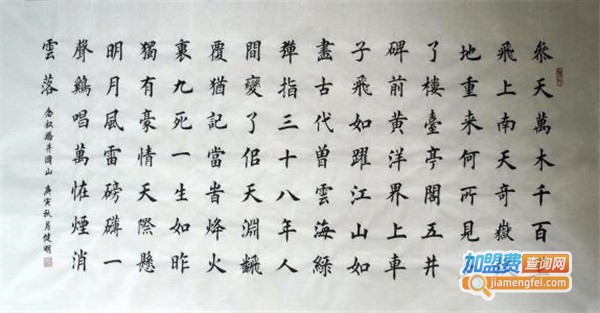 叅天萬木千百
飛上南天奇嶽
地重來何所見
了樓臺亭閣五井
碑前黃洋界上車
子飛如躍江山如
畫古代曾雲海綠
彈指三十八年人
間變了佀天淵飜
覆猶記當旹烽火
裏九死一生如昨
獨有豪情天際懸
明月風雷磅礴一
聲鷄唱萬恠煙消
雲落
念奴嬌井岡山 庚寅秋月健明
加盟费查询网
jiamengfei.com